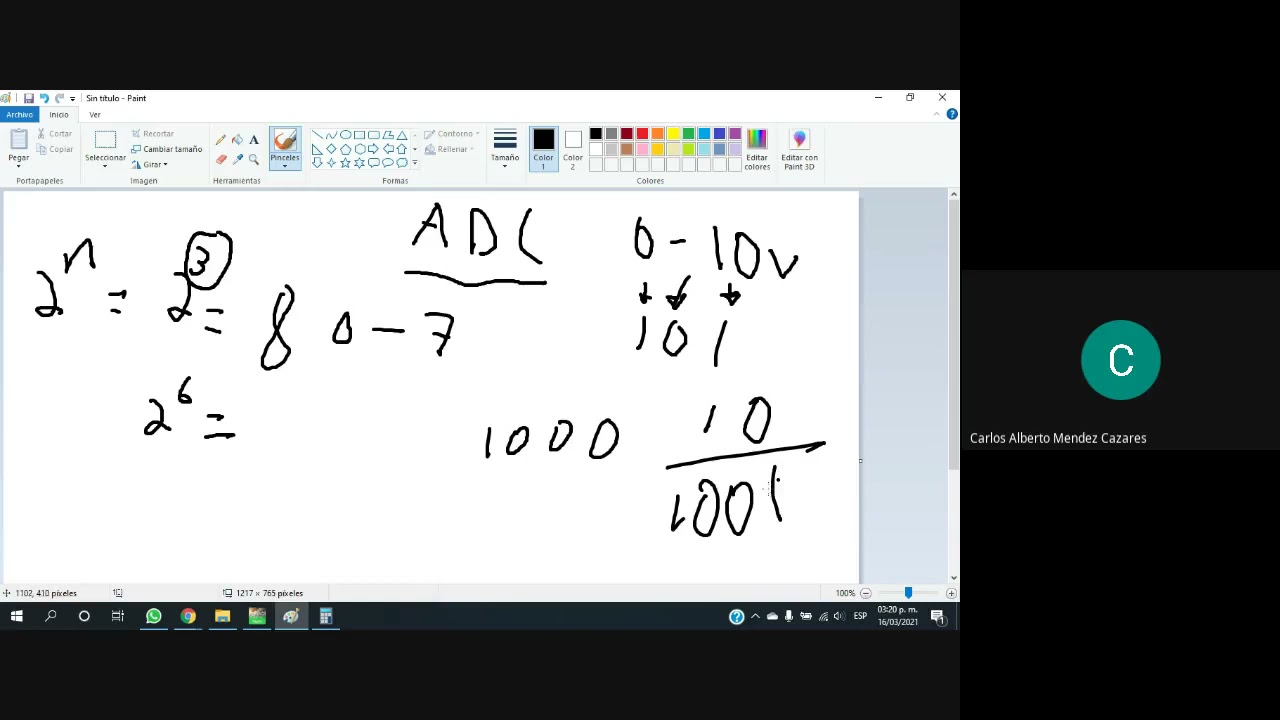 Sin título - Paint
Archivo Inicio Ver
Pegar
Cortar
Copiar
Portapapeles
Seleccionar
Recortar
Cambiar tamaño
Girar
Imagen
A
Herramientas
Pinceles
Contorno
Rellenar
Formas
Tamaño
Color 1
Color 2
Editar colores
Editar con Paint 3D
Colores
ADC
0 - 10v
2^n = 2^3 = 8 0 - 7
101
2^6 =
1000
10
1001
Carlos Alberto Mendez Cazares
C
1102, 410 píxeles
1217 × 765 píxeles
100%
ESP
03:20 p. m.
16/03/2021
1